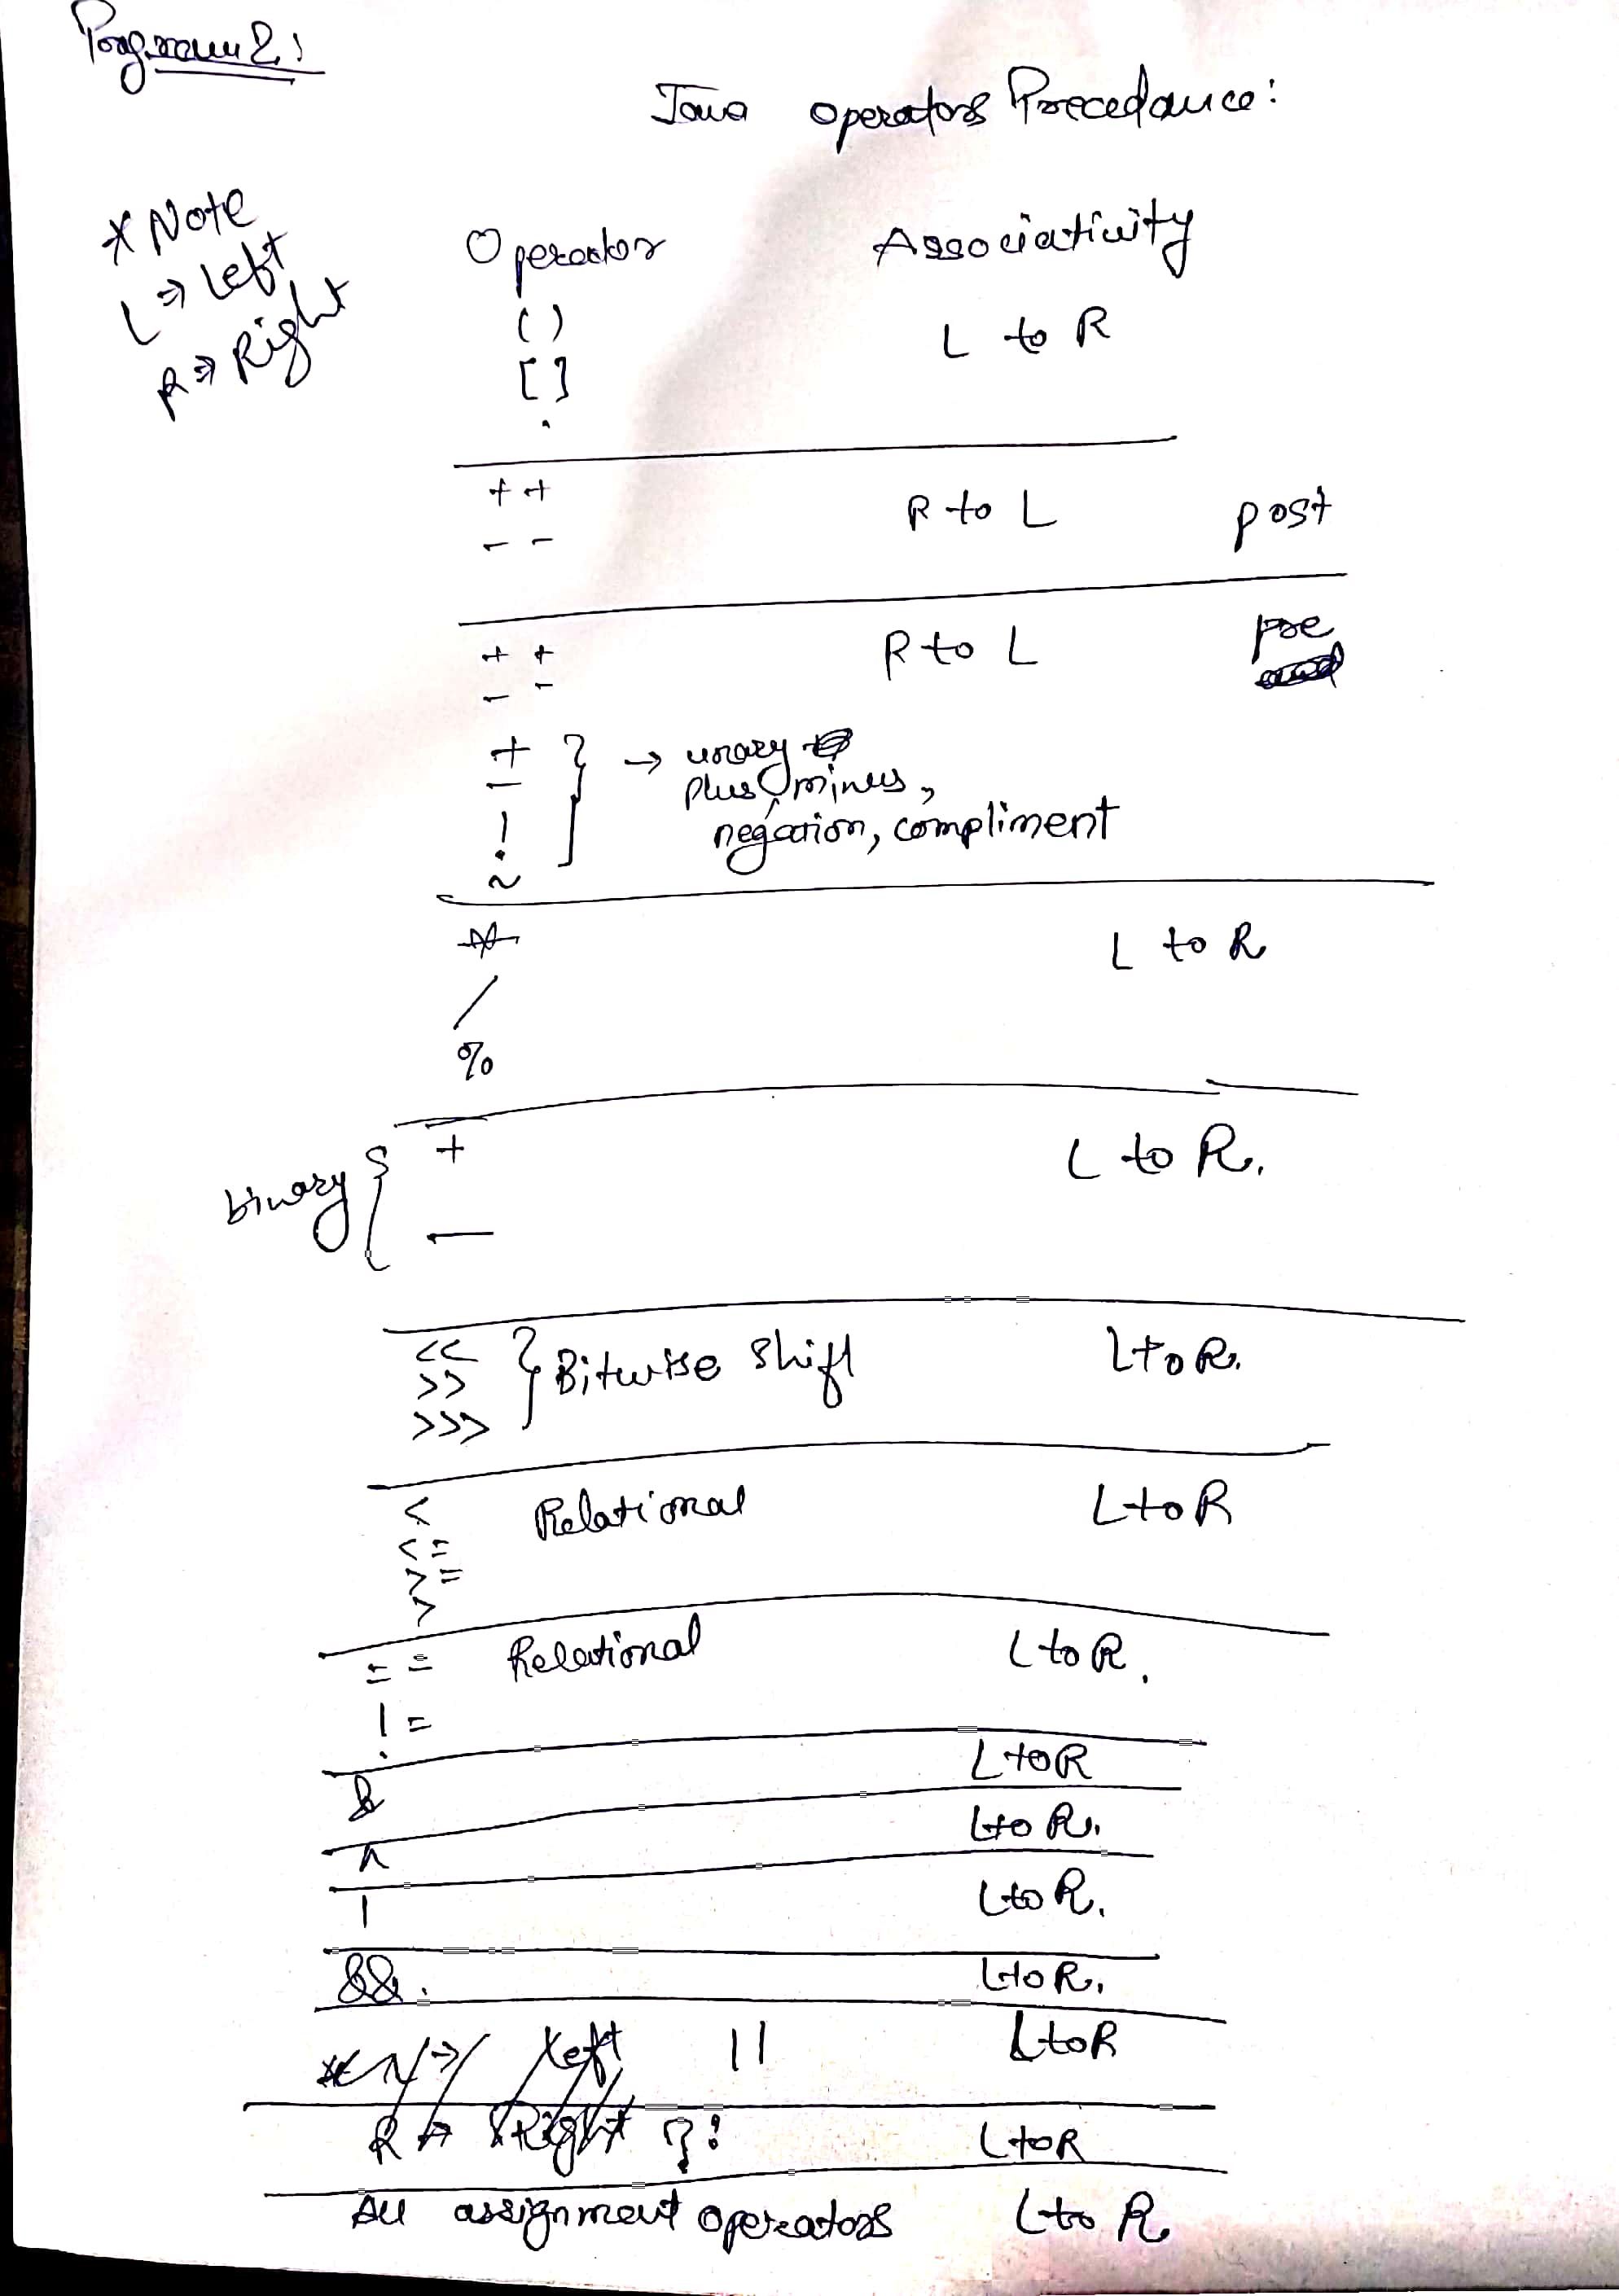 Program 2:
Java operators Precedance:
* Note
L => Left
R => Right
Operator Associativity
( ) L to R
[ ]
.
++ R to L post
--
++ R to L pre
--
+ } → unary
- plus, minus,
! negation, compliment
~
* L to R
/
%
binary { + L to R.
-
<< } Bitwise shift L to R.
>>
>>>
< Relational L to R
<=
>=
>
== Relational L to R.
!=
& L to R
^ L to R.
| L to R.
&&. L to R.
|| L to R
?: L to R
All assignment operators L to R